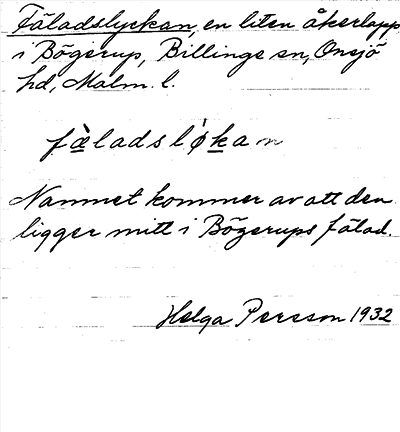 Fäladslyckan, en liten åkerlapp
i Bögerup, Billinge sn, Onsjö
hd, Malm. l.
fæ̀ladslø̍kan
Namnet kommer av att den
ligger mitt i Bögerups fälad.
Helga Persson 1932